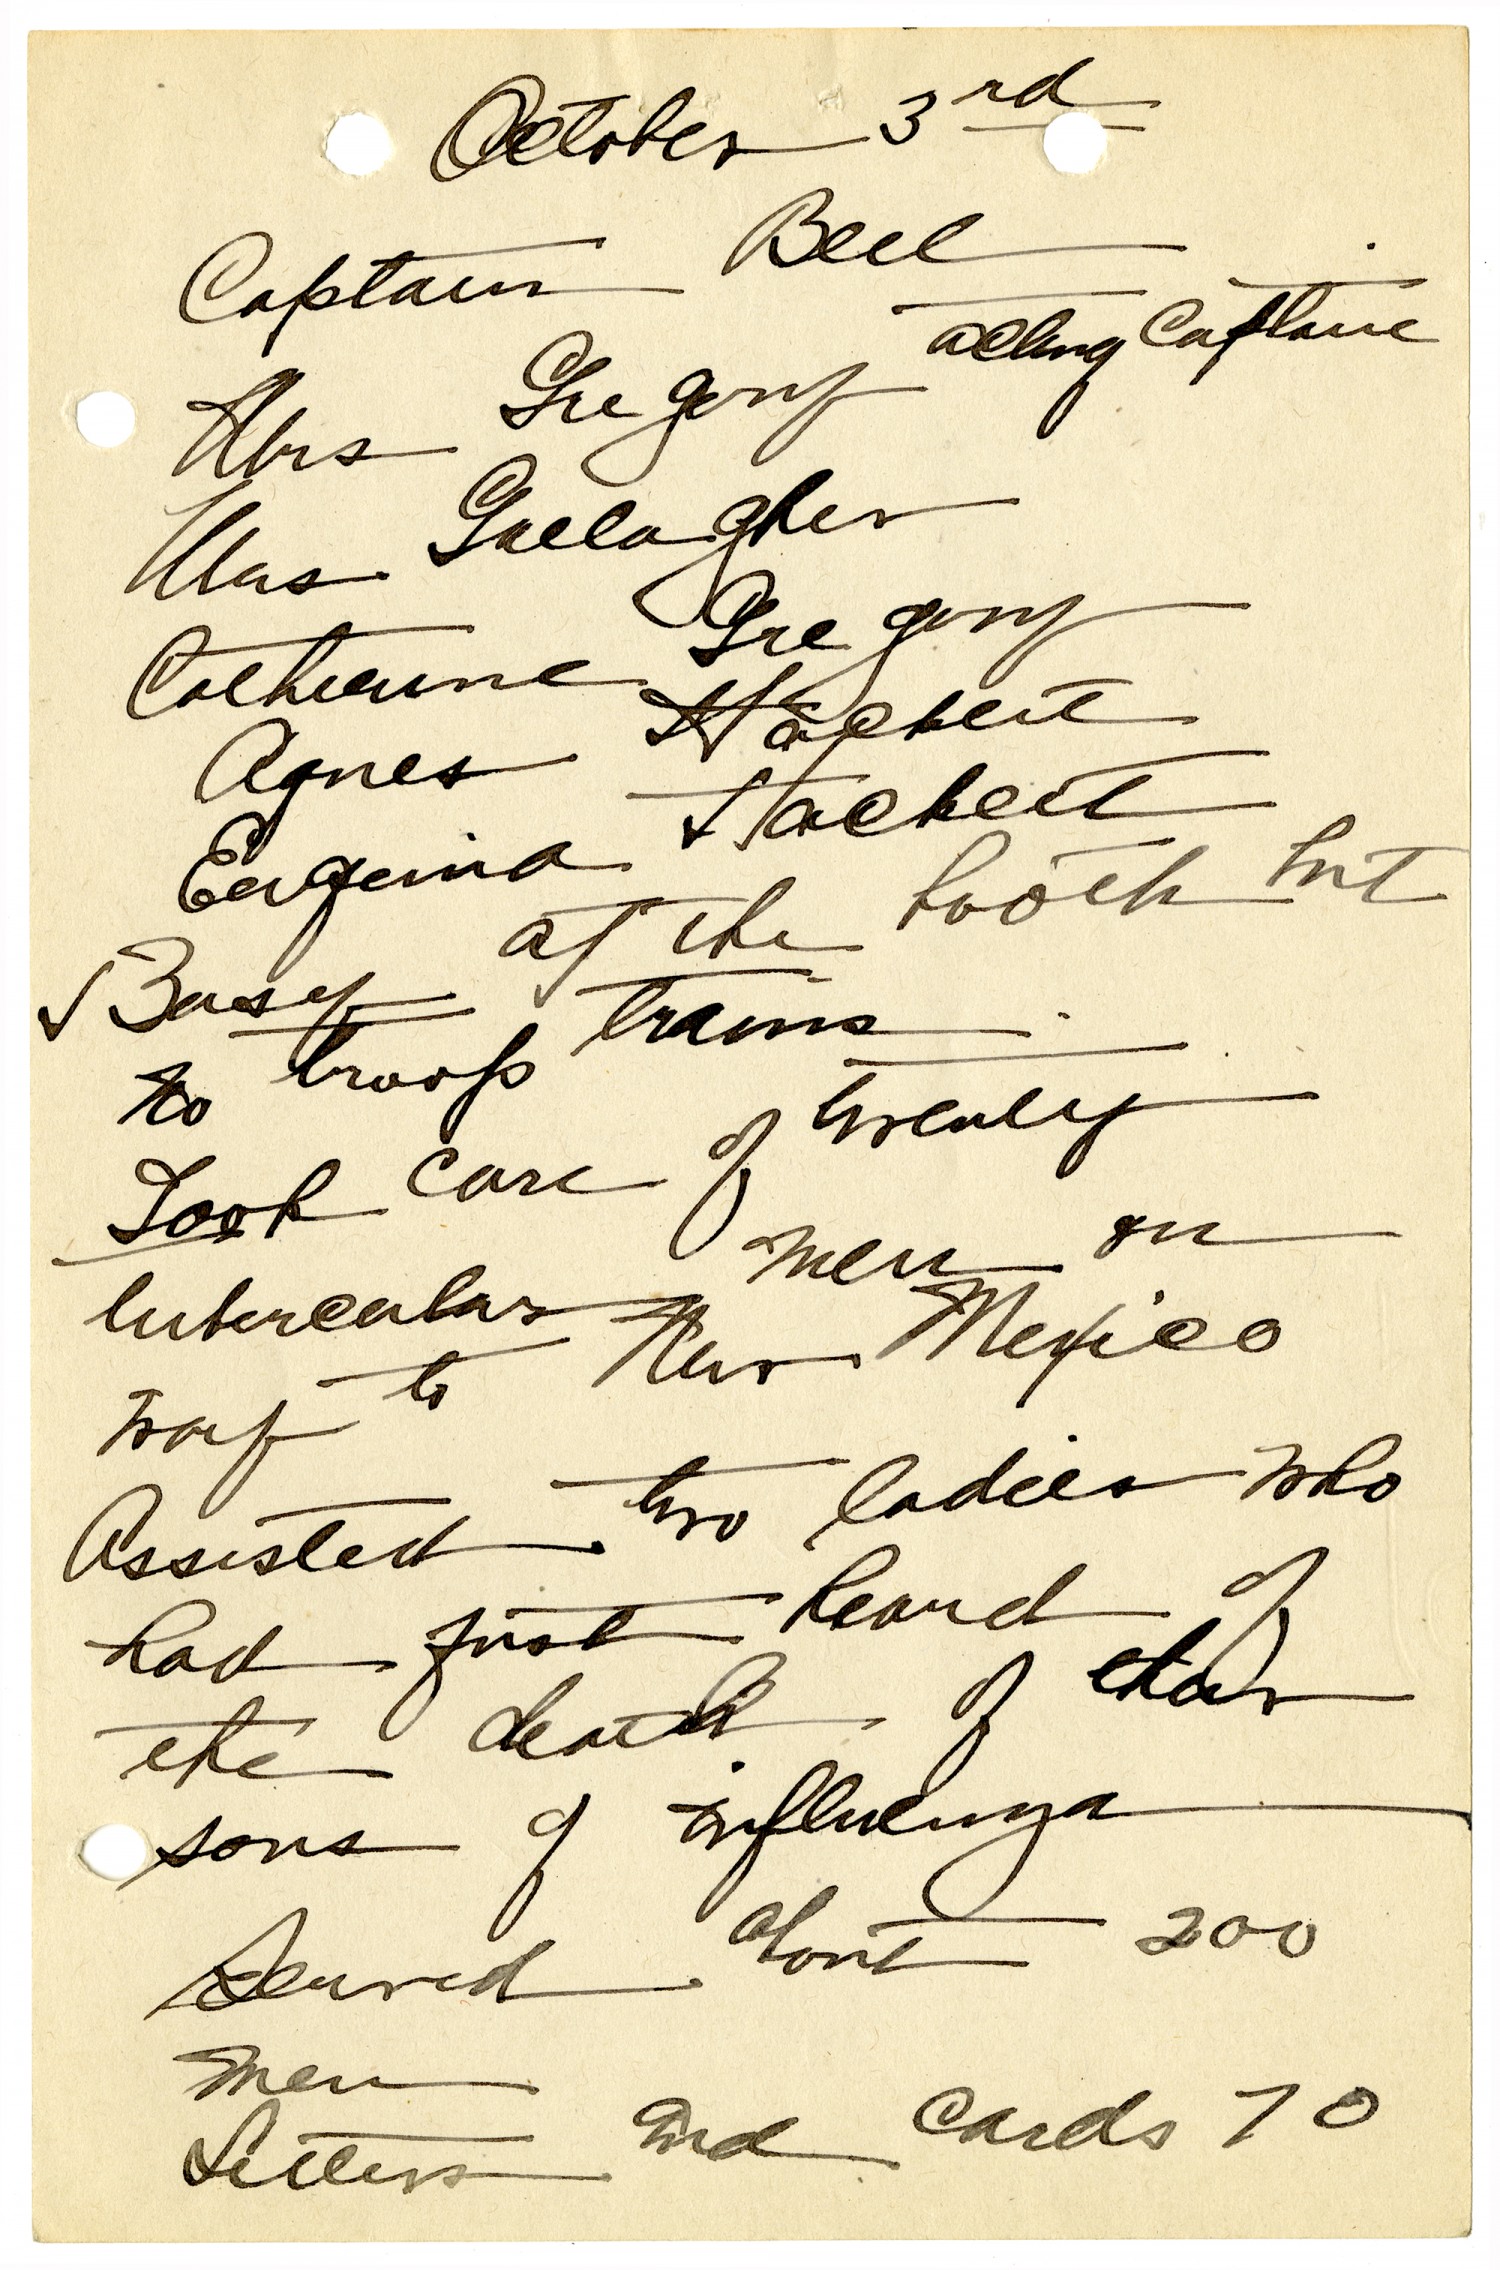 October 3rd
Captain Bell
Mrs Gregory acting Captain
Mrs. Gallagher
Catherine Gregory
Agnes Hackett
Eugenia Hackett
Busy at the booth but
no troop trains.
Took care of twenty
tubercular men on
way to New Mexico
Assisted two ladies who
had just heard of
the death of their
sons of influenza
Served about 200
men
Letters and cards 70